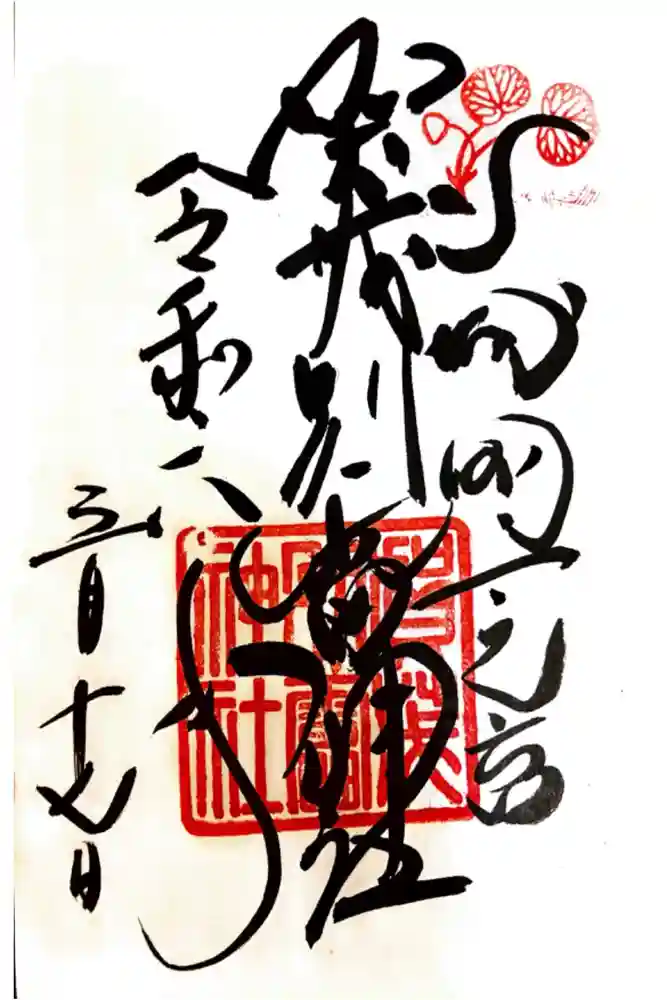 山城國一之宮
賀茂別雷神社
令和六年
三月十七日
賀茂
別雷
神社